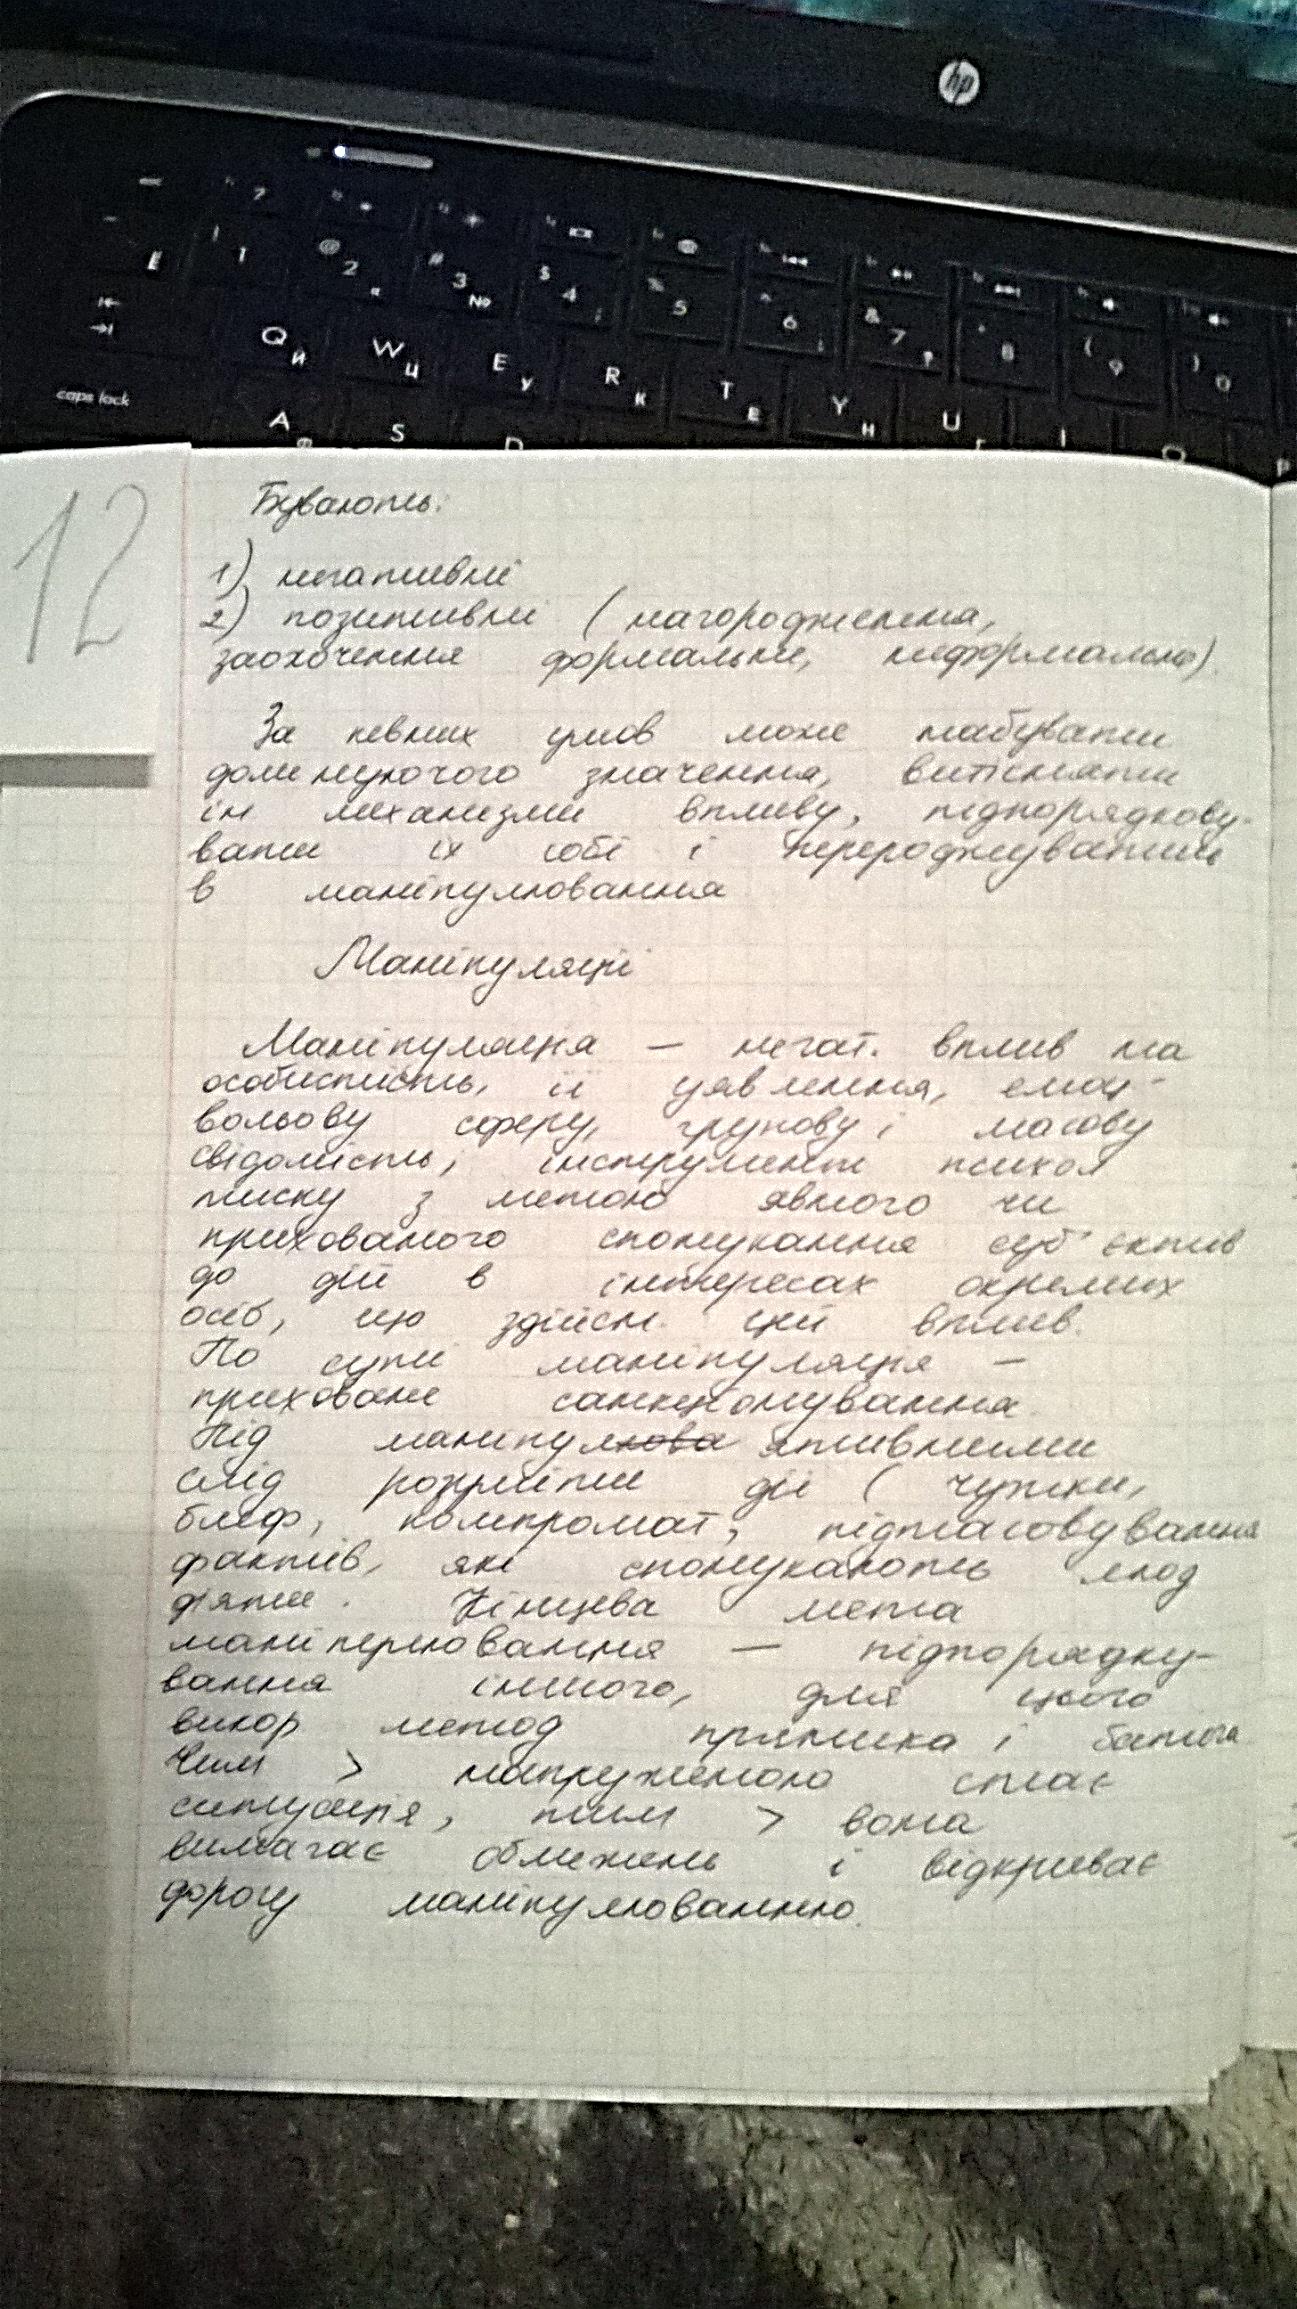 hp
7
E 1 @ 2 # 3 № $ 4 ; % 5 ^ 6 & 7 ? * 8 ( 9 ) 0
Q Й W Ц E У R К T Е Y Н U Г I O P
caps lock A Ф S D
12
Бувають:
1) негативні
2) позитивні (нагородження,
заохочення формальне, неформальне).
За певних умов може набувати
домінуючого значення, витісняти
ін механізми впливу, підпорядкову-
вати їх собі і перероджуватись
в маніпулювання
Маніпуляції
Маніпуляція – негат. вплив на
особистість, її уявлення, емоц-
вольову сферу, групову і масову
свідомість, інструмент психол
тиску з метою явного чи
прихованого спонукання суб'єктив
до дій в інтересах окремих
осіб, що здійсн. цей вплив.
По суті маніпуляція –
приховане санкціонування.
Під маніпулятивними
слід розуміти дії (чутки,
блеф, компромат, підтасовування
фактів, які спонукають люд
діяти. Кінцева мета
маніперювання – підпорядку-
вання іншого, для цього
викор метод пряника і батога
Чим > напруженою стає
ситуація, тим > вона
вимагає обмежень і відкриває
дорогу маніпулюванню.